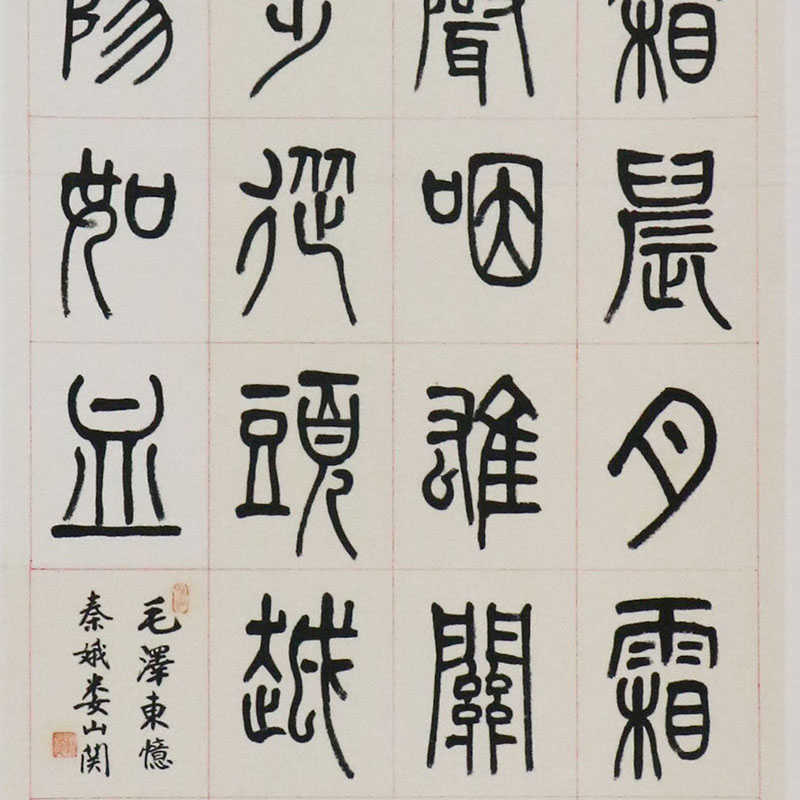 霜晨月霜
聲咽雄關
步從頭越
陽如血
毛澤東憶
秦娥娄山関